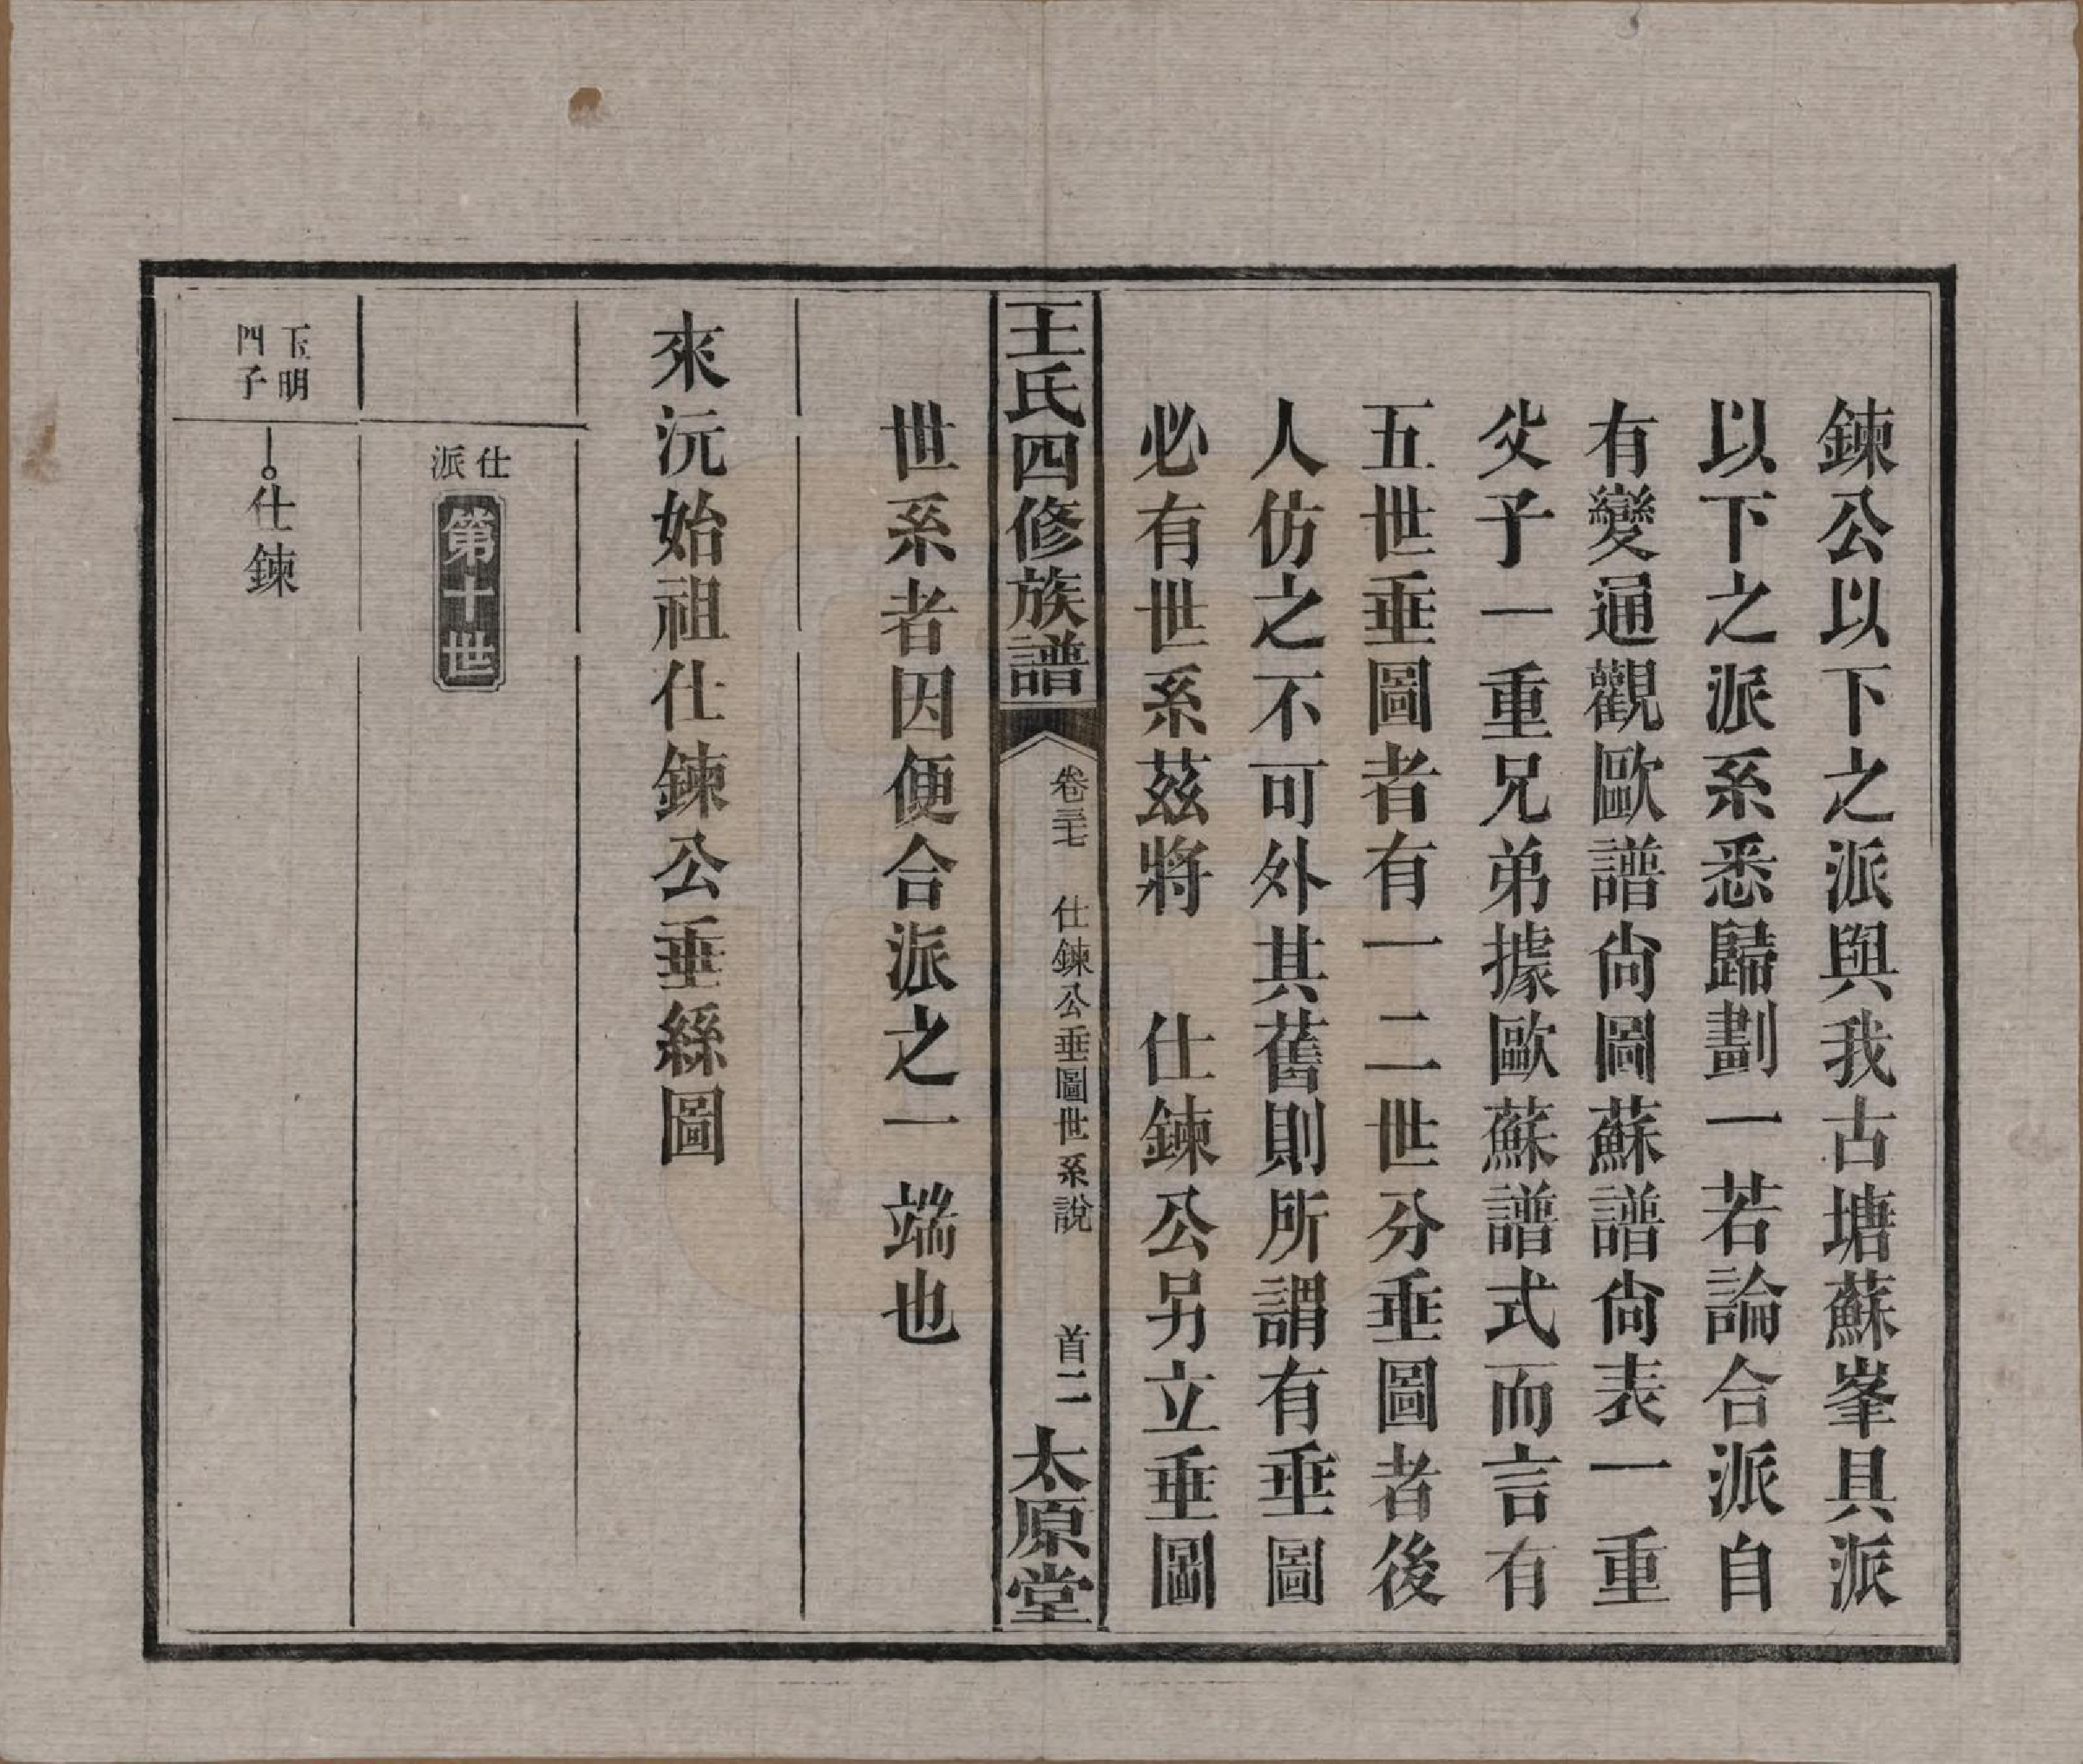 鍊公以下之派與我古塘蘇峯具派
以下之派系悉歸劃一若論合派自
有變通觀歐譜尙圖蘇譜尙表一重
父子一重兄弟據歐蘇譜式而言有
五世垂圖者有一二世分垂圖者後
人仿之不可外其舊則所謂有垂圖
必有世系茲將　仕鍊公另立垂圖
王氏四修族譜
卷三七　仕鍊公垂圖世系說　首二
太原堂
世系者因便合派之一端也
來沅始祖仕鍊公垂絲圖
仕派
第十世
玉明
四子
仕鍊